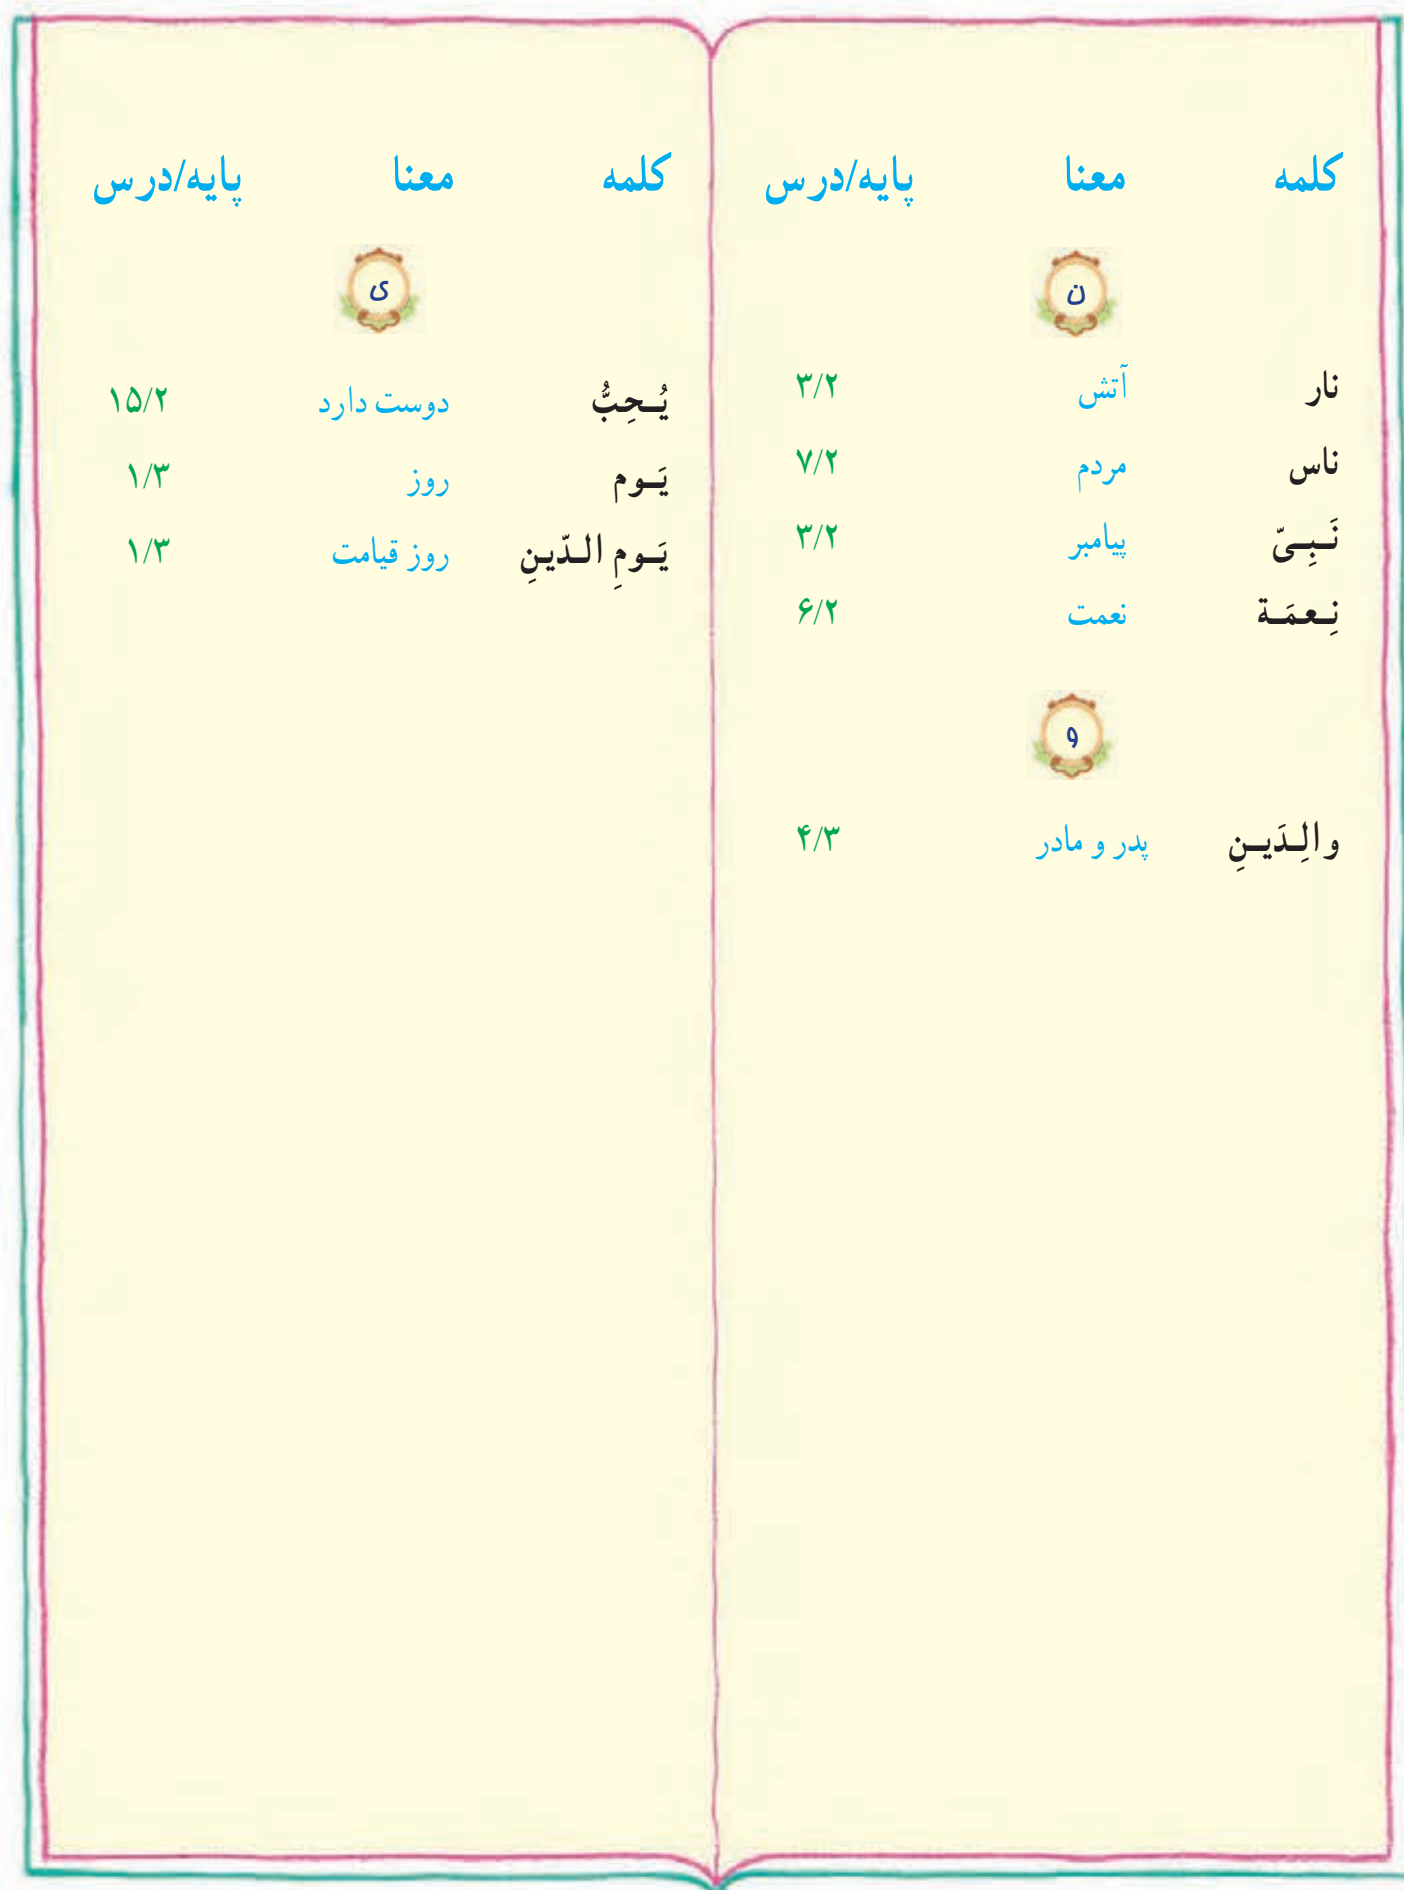 کلمه معنا پایه/درس
ن
نار آتش ۳/۲
ناس مردم ۷/۲
نَـبِـیّ پیامبر ۳/۲
نِـعمَـة نعمت ۶/۲
و
والِـدَیـنِ پدر و مادر ۴/۳
کلمه معنا پایه/درس
ی
یُـحِبُّ دوست دارد ۱۵/۲
یَـوم روز ۱/۳
یَـومِ الـدّینِ روز قیامت ۱/۳